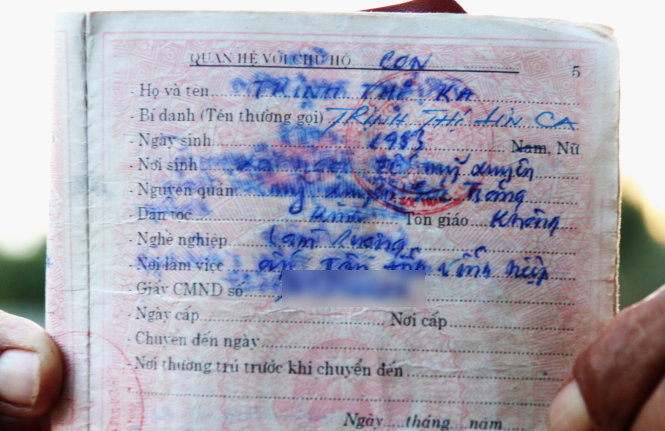 QUAN HỆ VỚI CHỦ HỘ CON
5
- Họ và tên TRỊNH THỊ KA
- Bí danh (Tên thường gọi) TRỊNH THỊ LIN CA
- Ngày sinh 1983 Nam, Nữ
- Nơi sinh Mỹ Xuyên
- Nguyên quán Trăng
- Dân tộc Kinh Tôn giáo Không
- Nghề nghiệp Làm Ruộng
- Nơi làm việc Tân Vĩnh Hiệp
- Giấy CMND số
- Ngày cấp Nơi cấp
- Chuyển đến ngày
- Nơi thường trú trước khi chuyển đến
Ngày tháng năm